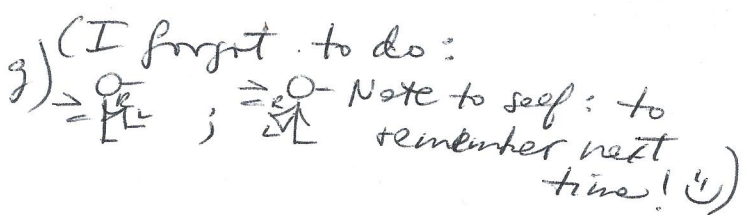 g) (I forgot to do:
R ; R - Note to self: to
remember next
time! )